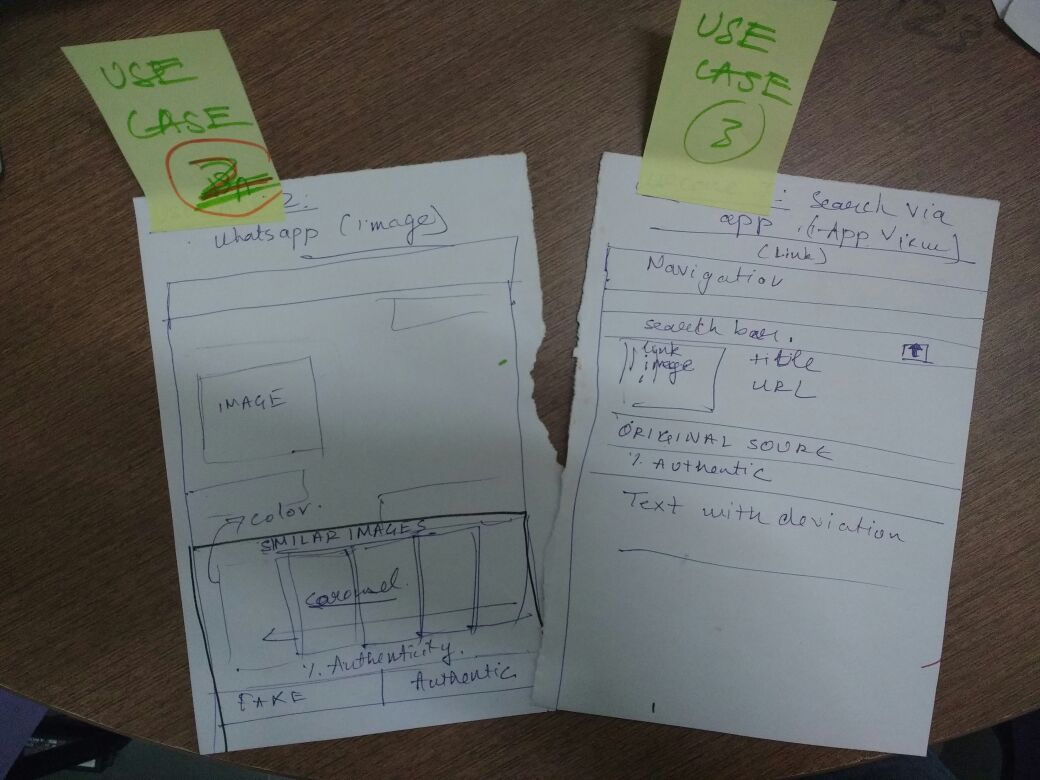 USE
CASE
2:
Whatsapp (image)
IMAGE
color.
SIMILAR IMAGES
carousel.
% Authenticity.
FAKE
Authentic
USE
CASE
3
: Search via
app . (-App View)
(Link)
Navigation
search bar.
link
image
title
URL
ORIGINAL SOURE
% Authentic
Text with deviation
123